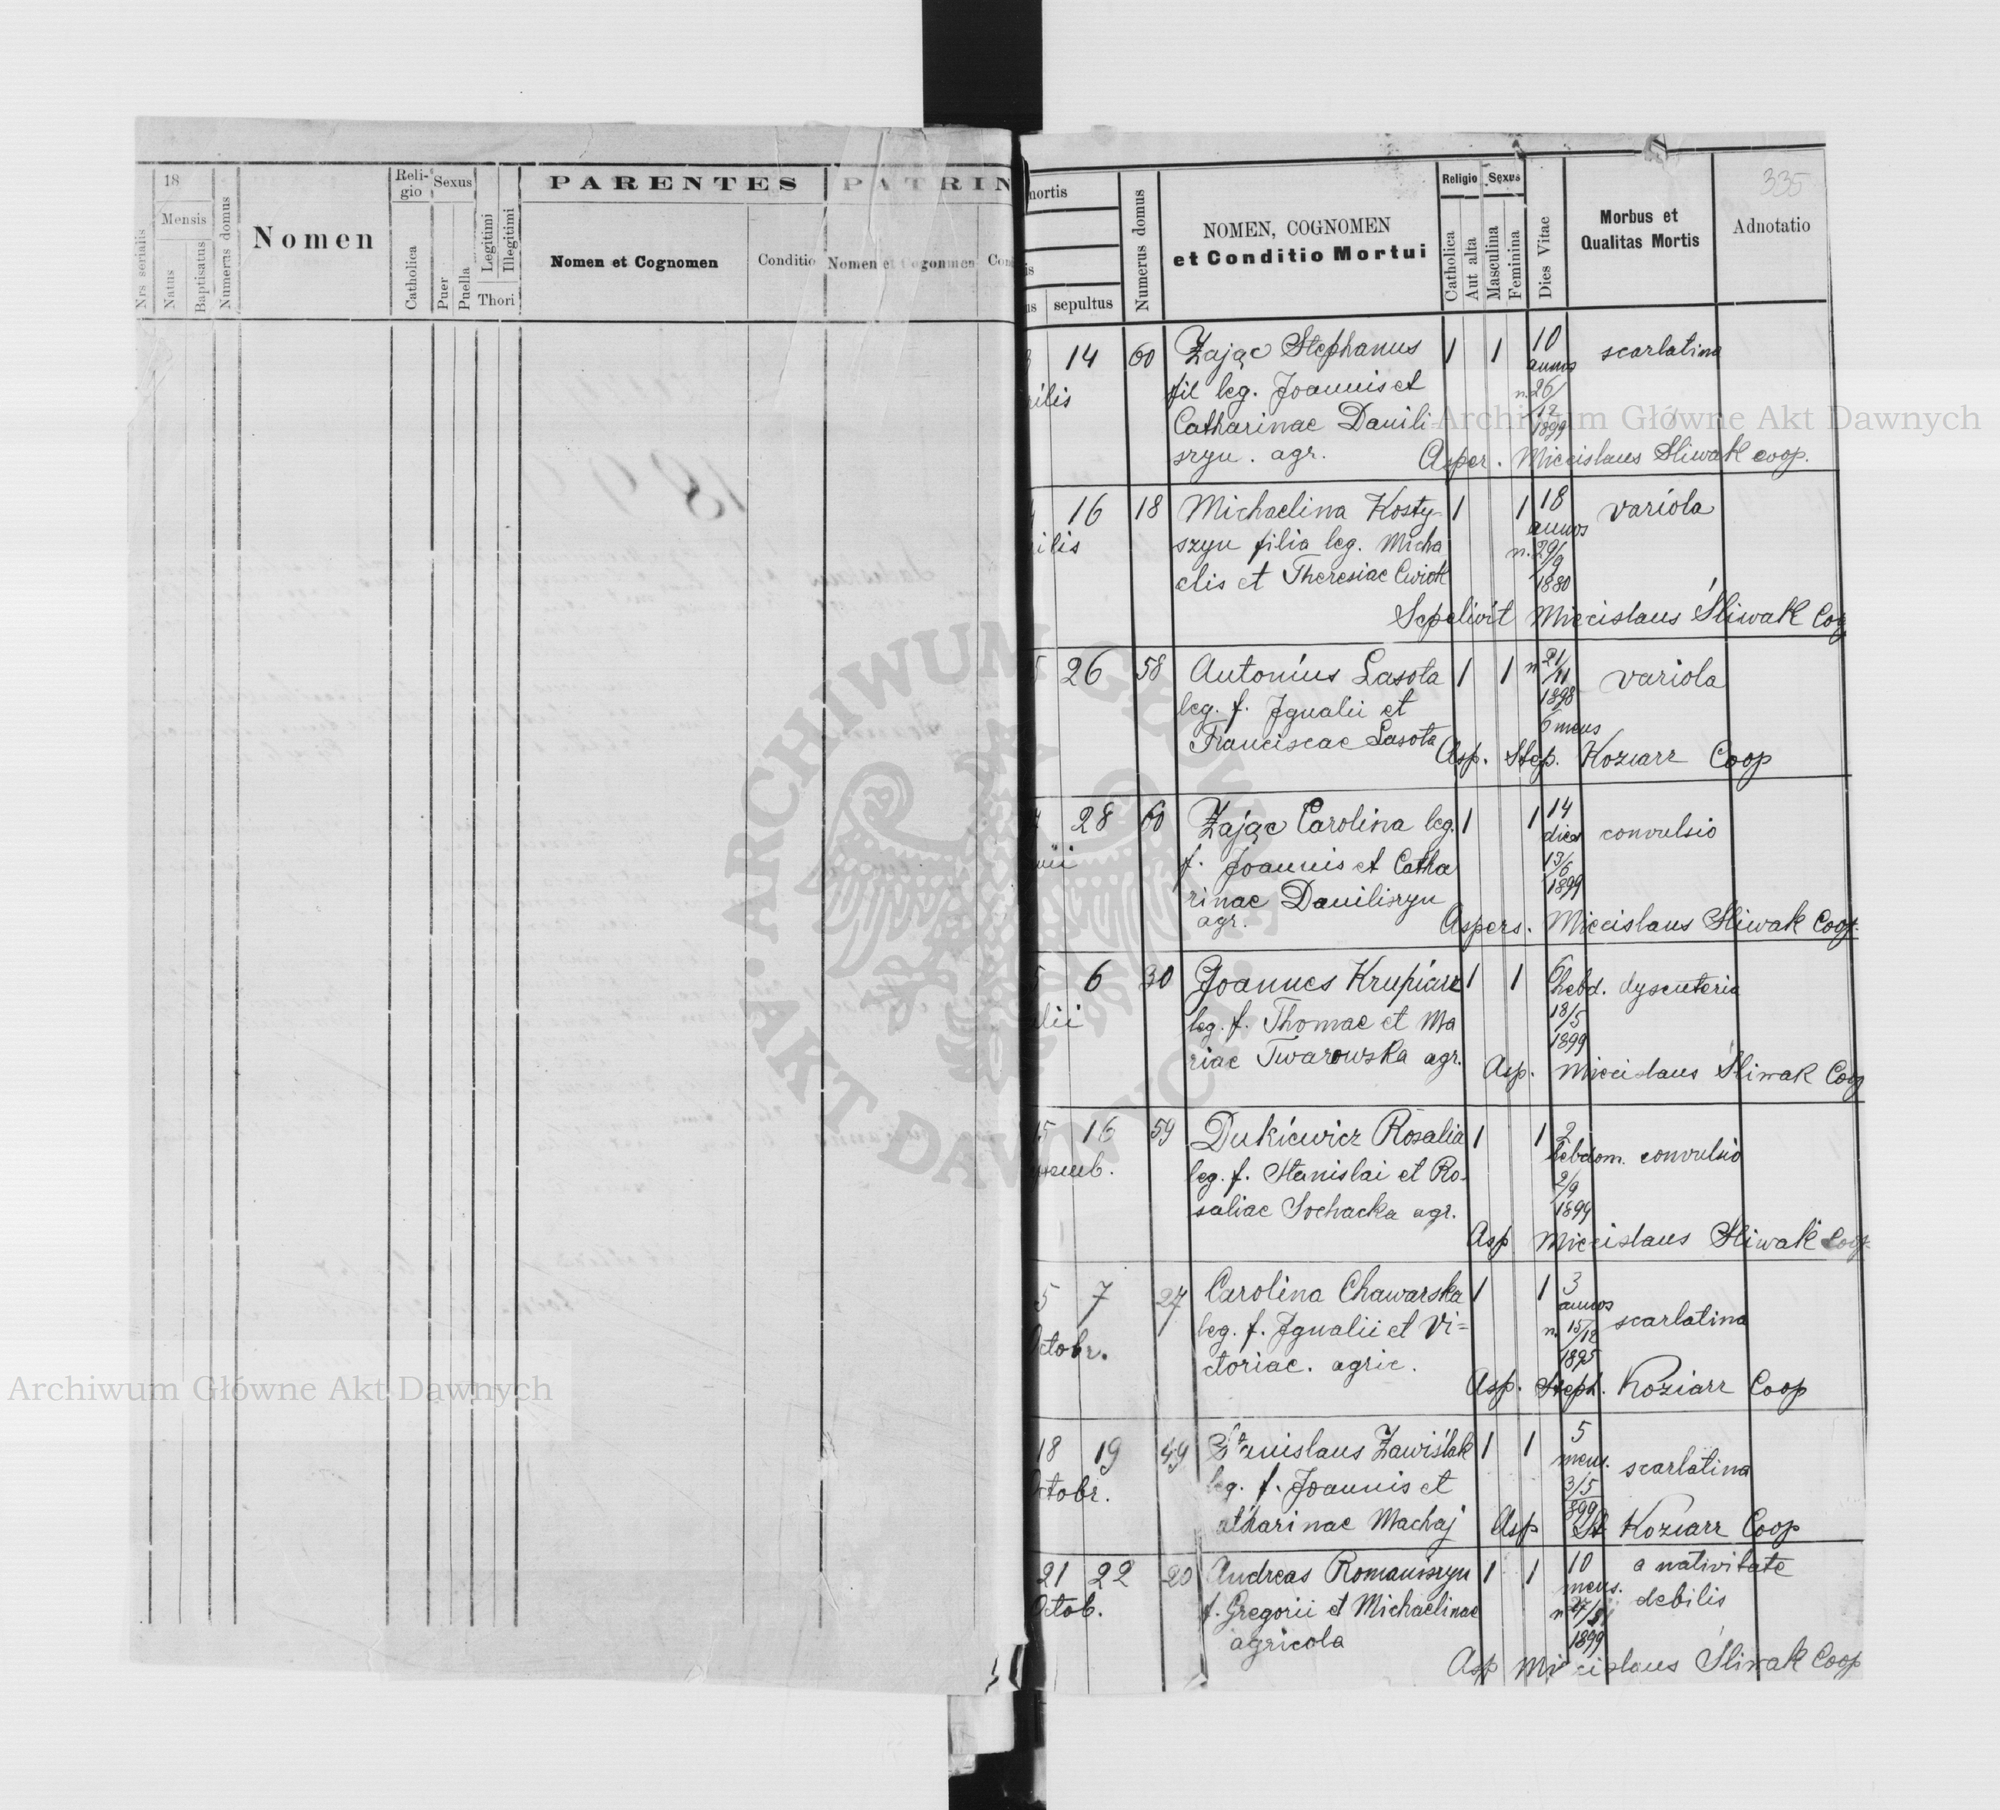 18
Mensis
Nrs serialis
Natus
Baptisatus
Numerus domus
Nomen
Religio
Sexus
Catholica
Puer
Puella
Legitimi
Illegitimi
Thori
PARENTES
Nomen et Cognomen
Conditio
PATRIN
Nomen et Cogonmen
Con
mortis
is
us
sepultus
Numerus domus
NOMEN, COGNOMEN
et Conditio Mortui
Religio
Sexus
Catholica
Aut alta
Masculina
Feminina
Dies Vitae
Morbus et
Qualitas Mortis
335
Adnotatio
14 60 Zając Stephanus 1 1 10 scarlatina
rilis fil leg. Joannis et annos
Catharinae Danili- n. 26/12
szyn. agr. 1899
Asper. Miecislaus Śliwak coop.
16 18 Michaelina Kosty- 1 1 18 variola
rilis szyn filia leg. Micha annos
elis et Theresiae Cwiok n. 29/9 1880
Sepelivit Miecislaus Śliwak Coop
5 26 58 Antonius Lasota 1 1 n 21/11 variola
leg. f. Ignatii et 1898
Franciscae Lasota 6 mens
Asp. Step. Koziarz Coop
28 60 Zając Carolina leg. 1 1 14 convulsio
nii f. Joannis et Catha dies
rinae Daniliszyn 13/6
agr. 1899
Aspers. Miecislaus Śliwak Coop.
5 6 30 Joannes Krupiarz 1 1 6 hebd. dysenteria
ulii leg. f. Thomae et Ma 18/5
riae Twarowska agr. 1899
Asp. Miecislaus Śliwak Coop
15 16 59 Dukiewicz Rosalia 1 1 2 hebdom. convulsio
leg. f. Stanislai et Ro- 2/9
saliae Sochacka agr. 1899
Asp Miecislaus Śliwak Coop.
5 7 27 Carolina Chawarska 1 1 3 annos scarlatina
Octobr. leg. f. Ignatii et Vi= n. 15/12
ctoriae. agric. 1895
Asp. Steph. Koziarz Coop
18 19 49 Stanislaus Zawiślak 1 1 5 mens. scarlatina
Octobr. leg. f. Joannis et 3/5
atharinae Machaj 899
Asp St Koziarz Coop
21 22 20 Andreas Romaniszyn 1 1 10 mens. a nativitate
Octob. f. Gregorii et Michaelinae debilis
agricola 1899
Asp Miecislaus Śliwak Coop
Archiwum Główne Akt Dawnych
Archiwum Główne Akt Dawnych
ARCHIWUM GŁÓWNE AKT DAWNYCH